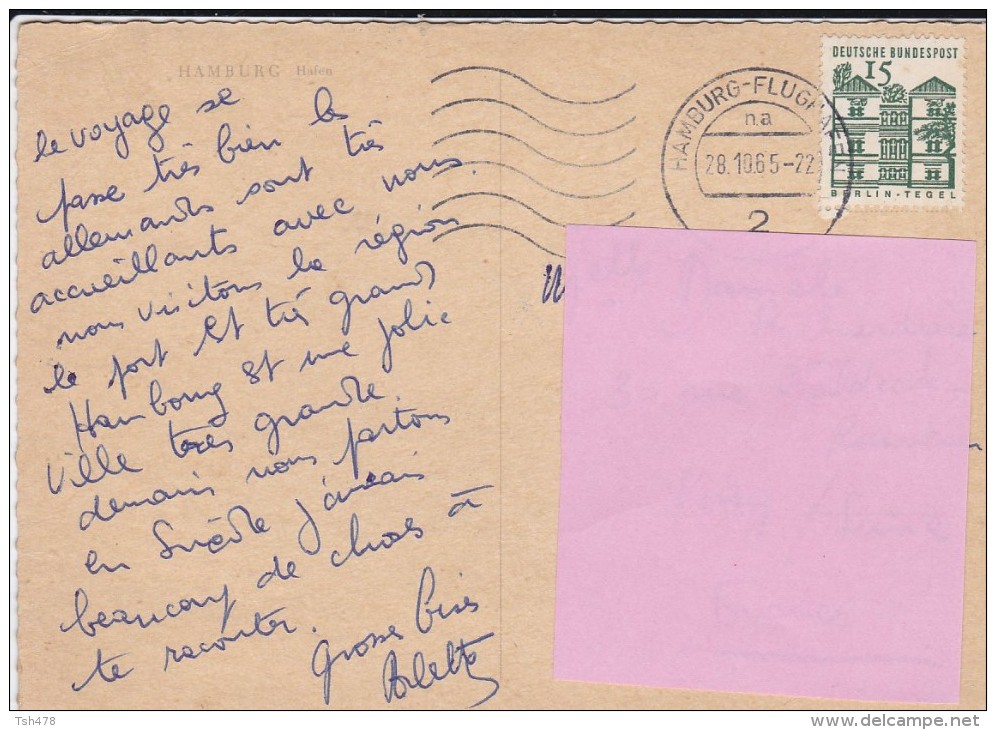 HAMBURG Hafen
le voyage se
passe très bien les
allemands sont très
accueillants avec nous.
nous visitons la région
le port et très grand
Hambourg est une jolie
ville très grande.
demain nous partons
en Suède j'aurais
beaucoup de choses à
te raconter.
Grosses bises
Arlette
HAMBURG-FLUGHAFEN
na
28.10.65-22
2
DEUTSCHE BUNDESPOST
15
BERLIN-TEGEL
Tsh478
delcampe.net